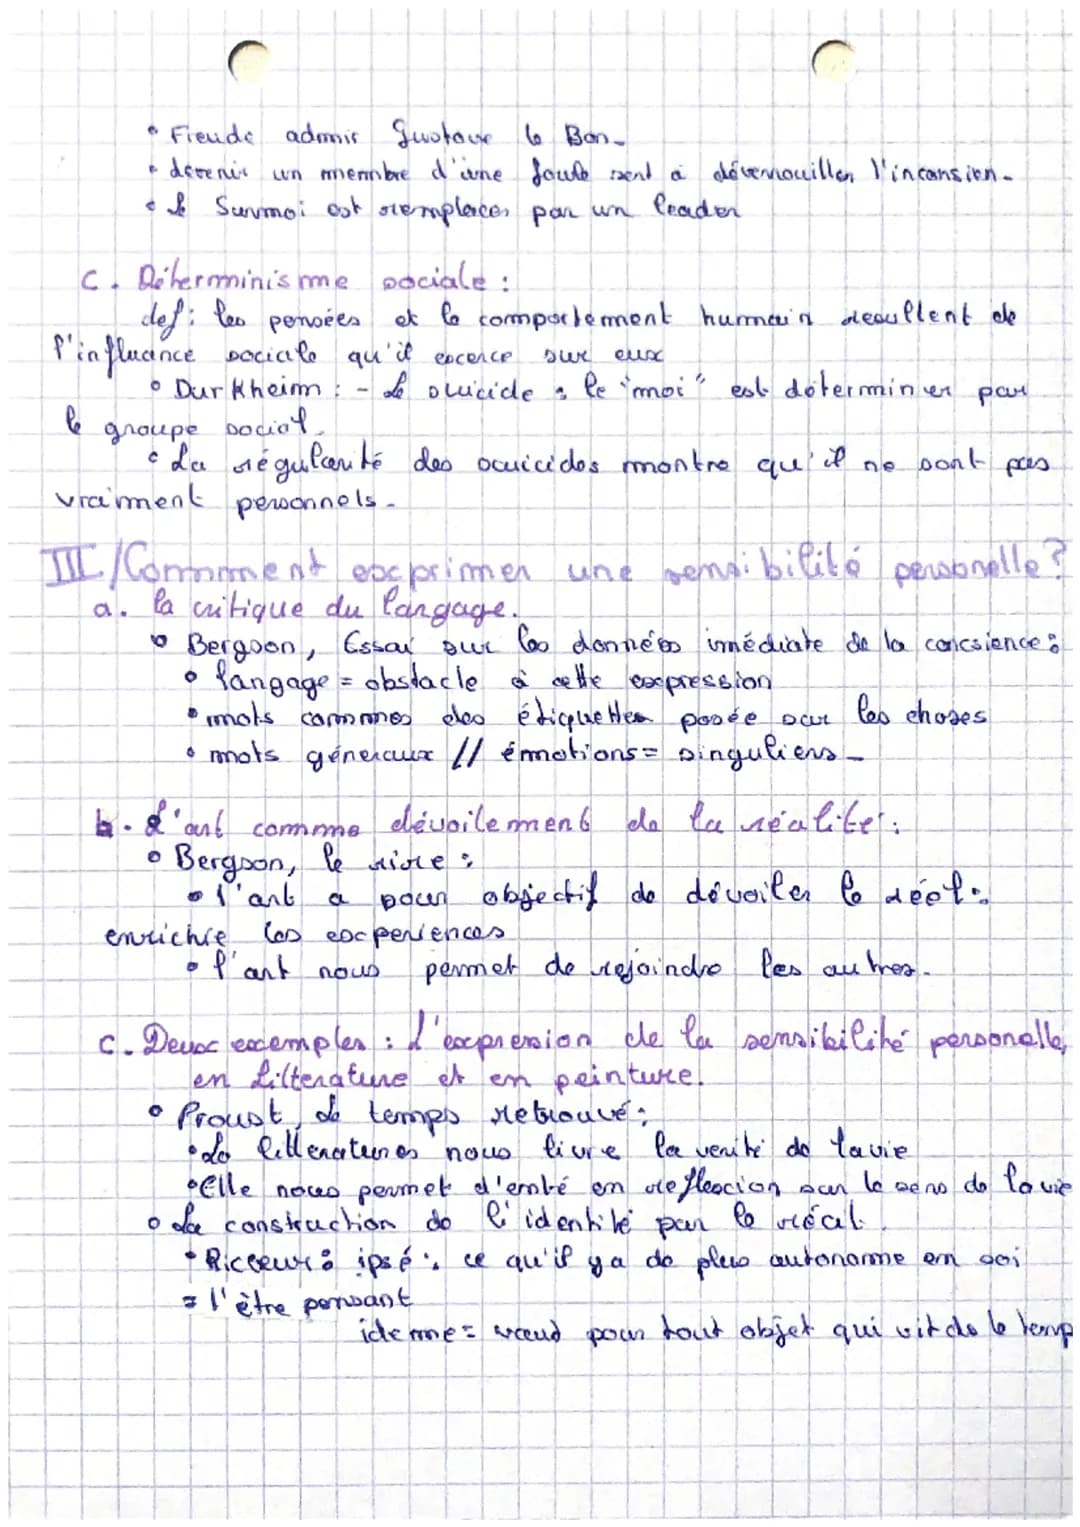 • Freude admir Gustave le Bon.
• devenir un membre d'une foule sert à déverrouiller l'inconsien.
• le Surmoi est remplacer par un leader
C. Déterminisme sociale :
def : les pensées et le comportement humain resultent de
l'influance sociale qu'il excerce sur eux
• Durkheim : - Le suicide : le "moi" est déterminer par
le groupe social.
• La régularité des suicides montre qu'il ne sont pas
vraiment personnels.
III./Comment exprimer une sensibilité personelle ?
a. la critique du langage.
• Bergson, Essai sur les données imédiate de la concsience :
• langage = obstacle à cette expression
• mots commes des étiquettes posée sur les choses
• mots géneraux // émotions = singuliers.
b. L'art comme dévoilement de la réalité :
• Bergson, le rire :
• l'art a pour objectif de dévoiler le réel :
enrichie les experiences
• l'art nous permet de rejoindre les autres.
C. Deux exemples : L'expression de la sensibilité personelle,
en Litterature et en peinture.
• Proust, Le temps retrouvé :
• La litteratures nous livre la verité de la vie
• Elle nous permet d'entré en reflexion sur le sens de la vie
• La construction de l'identité par le récit.
• Ricœur : ipsé : ce qu'il y a de plus autonome en soi
= l'être pensant
idemme = vaud pour tout objet qui vit ds le temp